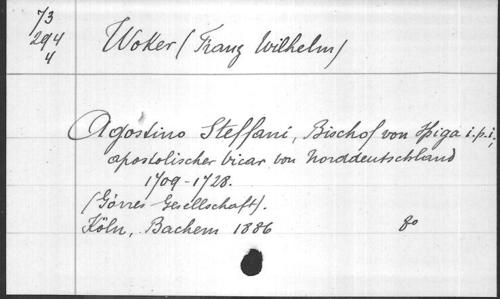 73
294
4
Woker (Franz Wilhelm)
Agostino Steffani, Bischof von Spiga i.p.i,
apostolischer Vicar von Norddeutschland
1709-1728.
(Görres-Gesellschaft).
Köln, Bachem 1886 8o